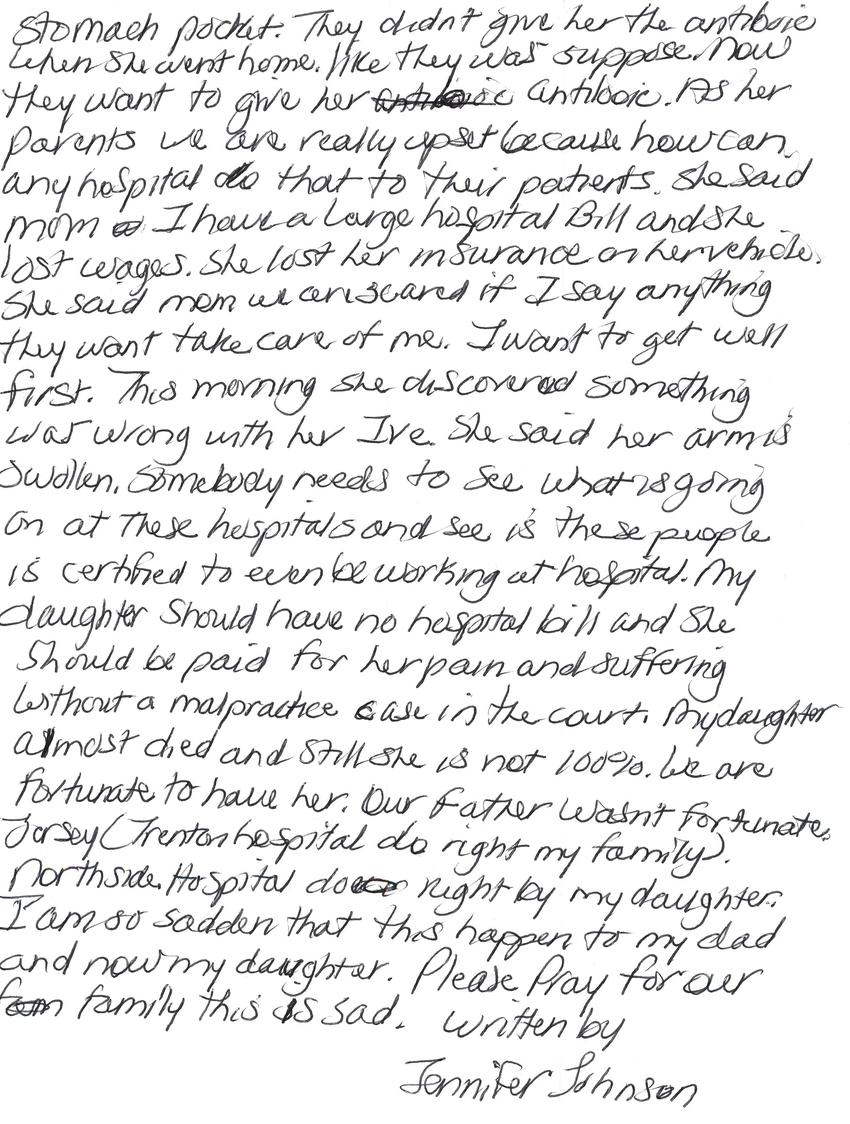 stomach pocket. They didn't give her the antiboic
when she went home. like they was suppose. Now
they want to give her antiboic. As her
parents we are really upset because how can
any hospital do that to their patients. She said
mom I have a large hospital Bill and she
lost wages. She lost her insurance on her vehicle.
She said mom we are scared if I say anything
they want take care of me. I want to get well
first. This morning she discovered something
was wrong with her Ive. She said her arm is
swollen. Somebody needs to see what is going
on at these hospitals and see is these people
is certified to even be working at hospital. My
daughter should have no hospital bill and she
should be paid for her pain and suffering
without a malpractice case in the court. My daughter
almost died and still she is not 100%. We are
fortunate to have her. Our Father wasn't fortunate.
Jersey (Trenton hospital do right my family).
Northside Hospital do right by my daughter.
I am so sadden that this happen to my dad
and now my daughter. Please Pray for our
family this is sad. Written by
Jennifer Johnson